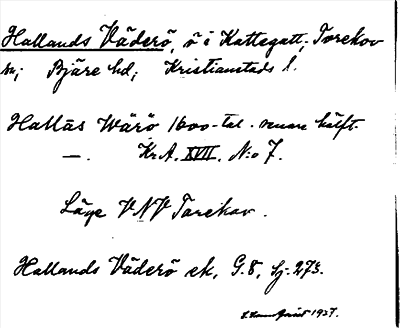 Hallands Väderö, ö i Kattegatt; Torekov
sn; Bjäre hd; Kristianstads l.
Hallås Wärö 1600-tal. senare hälft.
—. Kr.A. XVII. N:o 7.
Läge VNV Torekov.
Hallands Väderö ek, G.8, Sj. 273.
1927.